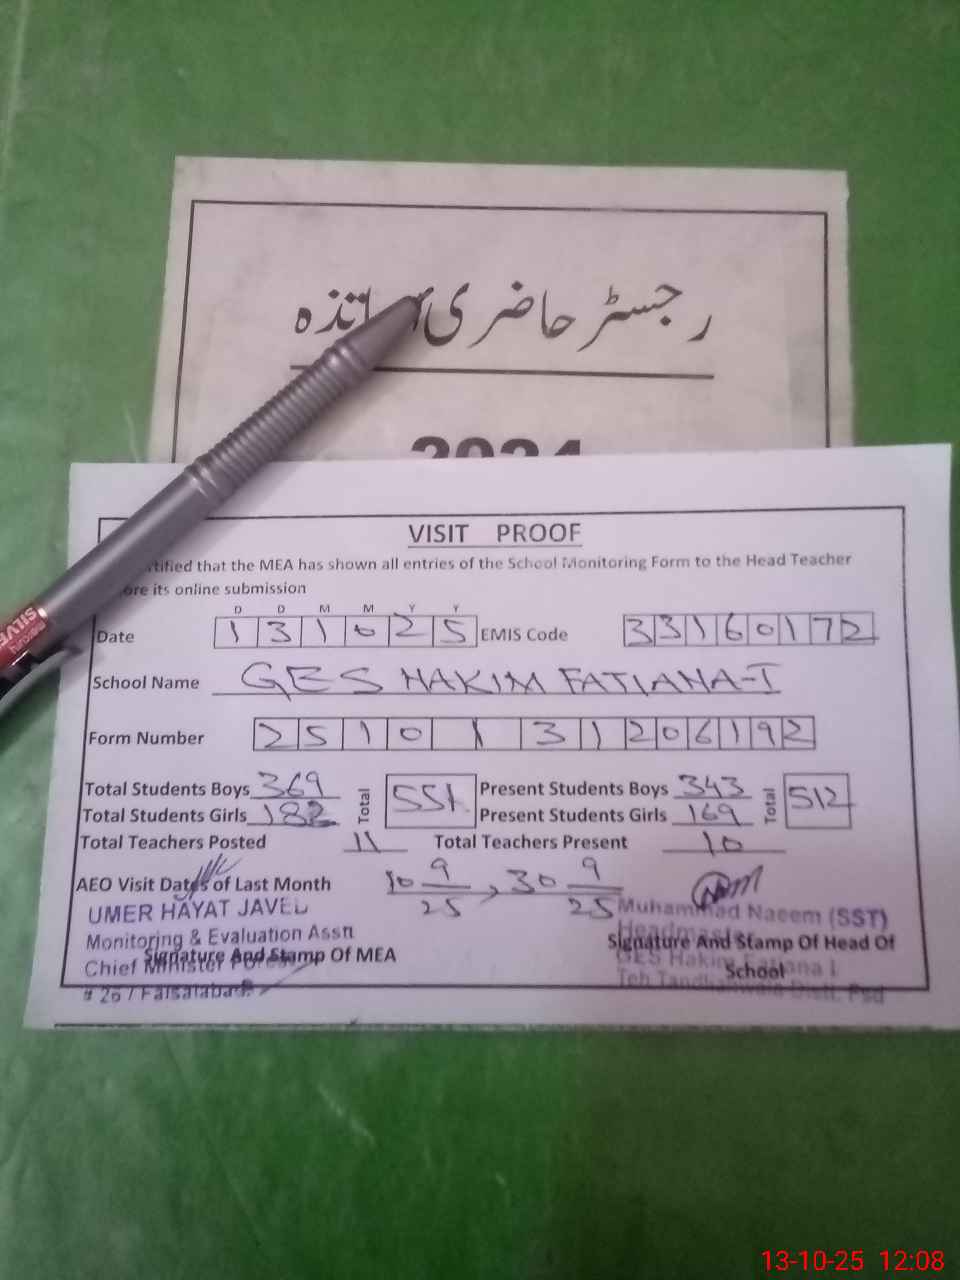 رجسٹر حاضری اساتذہ
2024
VISIT PROOF
that the MEA has shown all entries of the School Monitoring Form to the Head Teacher
its online submission
D D M M Y Y
Date 1 3 1 0 2 5 EMIS Code 3 3 1 6 0 1 7 2
School Name GES HAKIM FATIANA-I
Form Number 2 5 1 0 1 3 1 2 0 6 1 9 2
Total Students Boys 369 Total 551 Present Students Boys 343 Total 512
Total Students Girls 182 Present Students Girls 169
Total Teachers Posted 11 Total Teachers Present 10
AEO Visit Dates of Last Month 10 9/25, 30 9/25
UMER HAYAT JAVED
Monitoring & Evaluation Asstt
Chief Minister
Signature And Stamp Of MEA
# 267 Faisalabad
Muhammad Naeem (SST)
Headmaster
Signature And Stamp Of Head Of School
GES Hakim Fatiana I
Teh Tandlianwala Distt. Fsd
SILVER
13-10-25 12:08